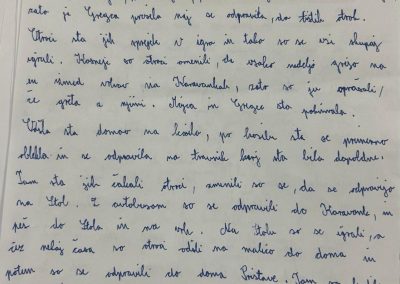 zato je Grega prosila naj se odpravita do tistih otrok.
Otroci sta jih sprejele v igro in tako so se vsi skupaj
igrali. Kasneje so otroci omenili, da vsako nedeljo grejo na
en izmed vrhov na Karavankah, zato so ju vprašali,
če gresta z njimi. Mojca in Grega sta pokimala.
Odšla sta domov na kosilo, po kosilu sta se primerno
oblekla in se odpravila na travnik kjer sta bila dopoldne.
Tam sta jih čakali otroci, zmenili so se, da se odpravijo
na Stol. Z avtobusom so se odpravili do Karavank, in
peš do Stola in na vrh. Na Stolu so se igrali, a
čez nekaj časa so otroci odšli na malico do doma in
potem so se odpravili do doma Pristave. Tam so